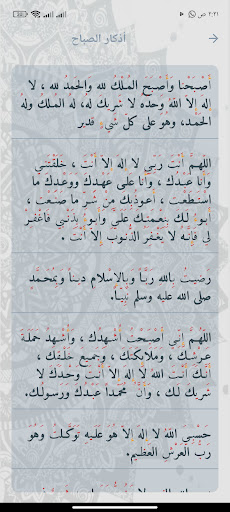 ٢:٢١ ص
أذكار الصباح
أَصْبَحْنَا وَأَصْبَحَ المُلْكُ لله وَالحَمدُ لله ، لا
إله إلاَّ اللهُ وَحدَهُ لا شَريكَ لهُ، لهُ المُلكُ ولهُ
الحَمْد، وهُوَ على كلّ شَيءٍ قدير
اللهمَّ أَنْتَ رَبِّي لا إلهَ إلاَّ أَنْتَ ، خَلَقْتَني
وَأَنا عَبْدُك ، وَأَنا عَلى عَهْدِكَ وَوَعْدِكَ ما
اسْتَطَعْت ، أَعوذُبِكَ مِنْ شَرِّ ما صَنَعْت ، أَبوءُ
لَكَ بِنِعْمَتِكَ عَلَيَّ وَأَبوءُ بِذَنْبي فَاغْفِرْ
لي فَإِنَّهُ لا يَغْفِرُ الذُّنوبَ إِلاّ أَنْتَ .
رَضيتُ بِاللهِ رَبَّاً وَبِالإسْلامِ ديناً وَبِمُحَمَّدٍ
صلى الله عليه وسلم نَبِيَّاً.
اللّهُمَّ إِنِّي أَصْبَحْتُ أُشْهِدُك ، وَأُشْهِدُ حَمَلَةَ
عَرْشِك ، وَمَلائِكَتِك ، وَجَميعَ خَلْقِك ،
أَنَّكَ أَنْتَ اللهُ لا إلهَ إلاّ أَنْتَ وَحْدَكَ لا
شَريكَ لَك ، وَأَنَّ مُحَمّداً عَبْدُكَ وَرَسولُك.
حَسْبِيَ اللهُ لا إلهَ إلاّ هُوَ عَلَيهِ تَوَكَّلتُ وَهُوَ
رَبُّ العَرْشِ العَظيم.